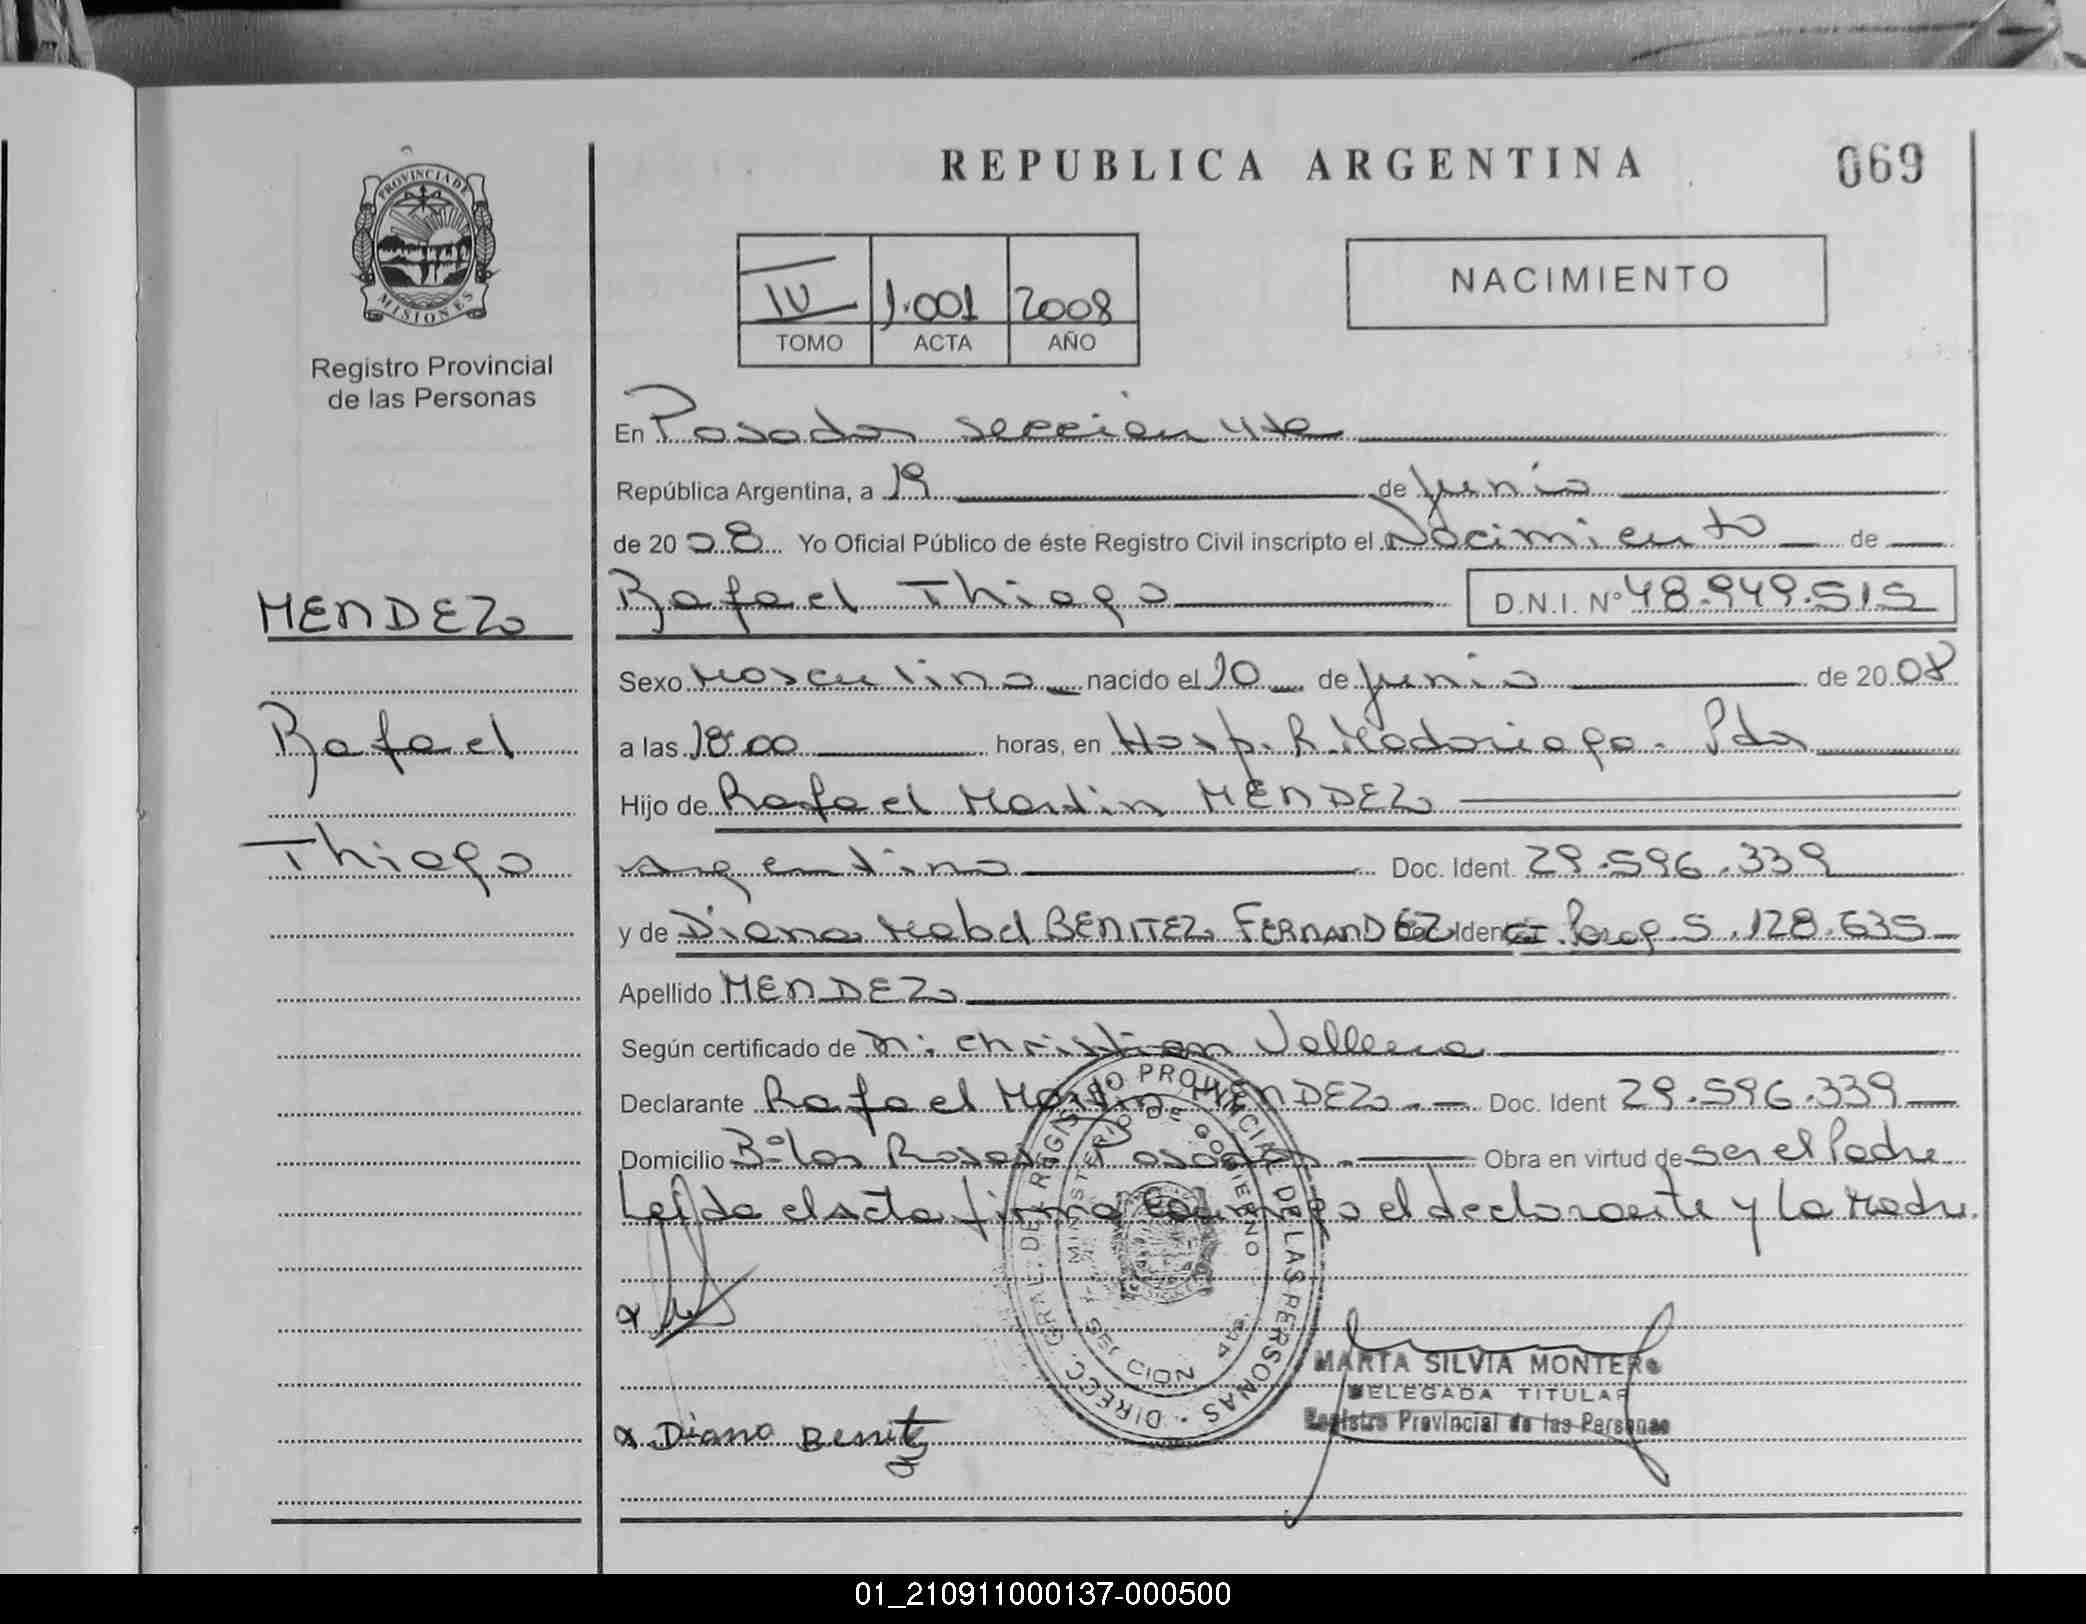 REPUBLICA ARGENTINA
069
PROVINCIA DE
MISIONES
Registro Provincial
de las Personas
NACIMIENTO
IV 1.001 2008
TOMO ACTA AÑO
En Posadas sección 4ta
República Argentina, a 19 de junio
de 2008 Yo Oficial Público de éste Registro Civil inscripto el Nacimiento de
MENDEZ
Rafael Thiago D.N.I. Nº 48.949.515
Sexo Masculino nacido el 10 de junio de 2008
Rafael
a las 18:00 horas, en Hosp. R. Madariaga. Pdas
Hijo de Rafael Martin MENDEZ
Thiago
Argentino Doc. Ident. 29.596.339
y de Diana Mabel BENITEZ FERNANDEZ Ident. CI. Parag 5.128.635
Apellido MENDEZ
Según certificado de Christian
Declarante Rafael Martin MENDEZ.- Doc. Ident 29.596.339
Domicilio Bº las Rosas Posadas.- Obra en virtud de ser el Padre
Leída el acta firma conmigo el declarante y la Madre.
DIRECC. GRAL. DEL REGISTRO PROVINCIAL DE LAS PERSONAS
MINISTERIO DE GOBIERNO
x
MARTA SILVIA MONTERO
DELEGADA TITULAR
Registro Provincial de las Personas
x Diana Benitez
01_210911000137-000500